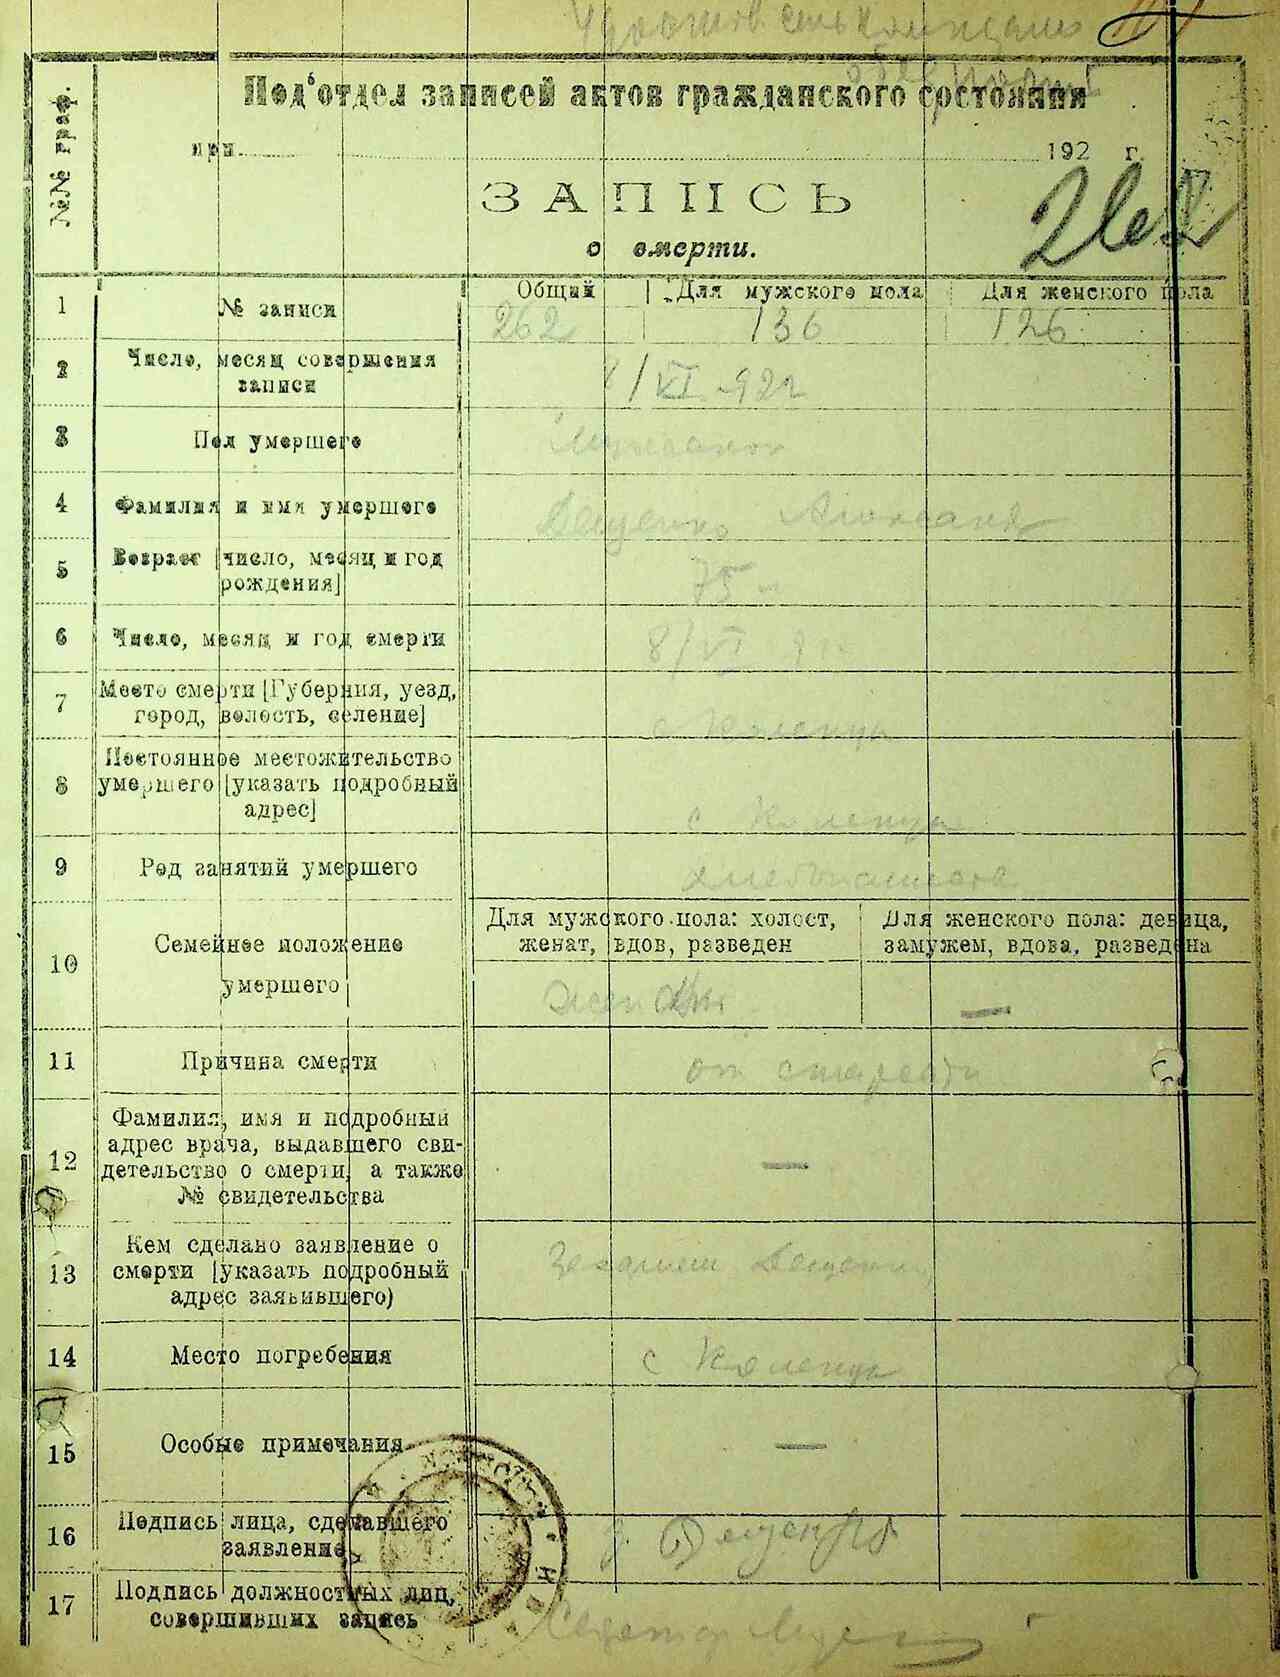 Под'отдел записей актов гражданского состояния
№№ граф.
при 192 г.
262
ЗАПИСЬ
о смерти.
1 № записи Общий Для мужского пола Для женского пола
262 136 126
2 Число, месяц совершения
записи
8/VI 92 г
3 Пол умершего
Мужской
4 Фамилия и имя умершего
5 Возраст [число, месяц и год
рождения]
75
6 Число, месяц и год смерти
8/VI
7 Место смерти [Губерния, уезд,
город, волость, селение]
с
8 Постоянное местожительство
умершего [указать подробный
адрес]
с
9 Род занятий умершего
хлебопашество
10 Семейное положение
умершего
Для мужского пола: холост,
женат, вдов, разведен
Для женского пола: девица,
замужем, вдова, разведена
женат —
11 Причина смерти
от старости
12 Фамилия, имя и подробный
адрес врача, выдавшего сви-
детельство о смерти, а также
№ свидетельства
—
13 Кем сделано заявление о
смерти [указать подробный
адрес заявившего)
14 Место погребения
с
15 Особые примечания
—
16 Подпись лица, сделавшего
заявление
17 Подпись должностных лиц,
совершивших запись